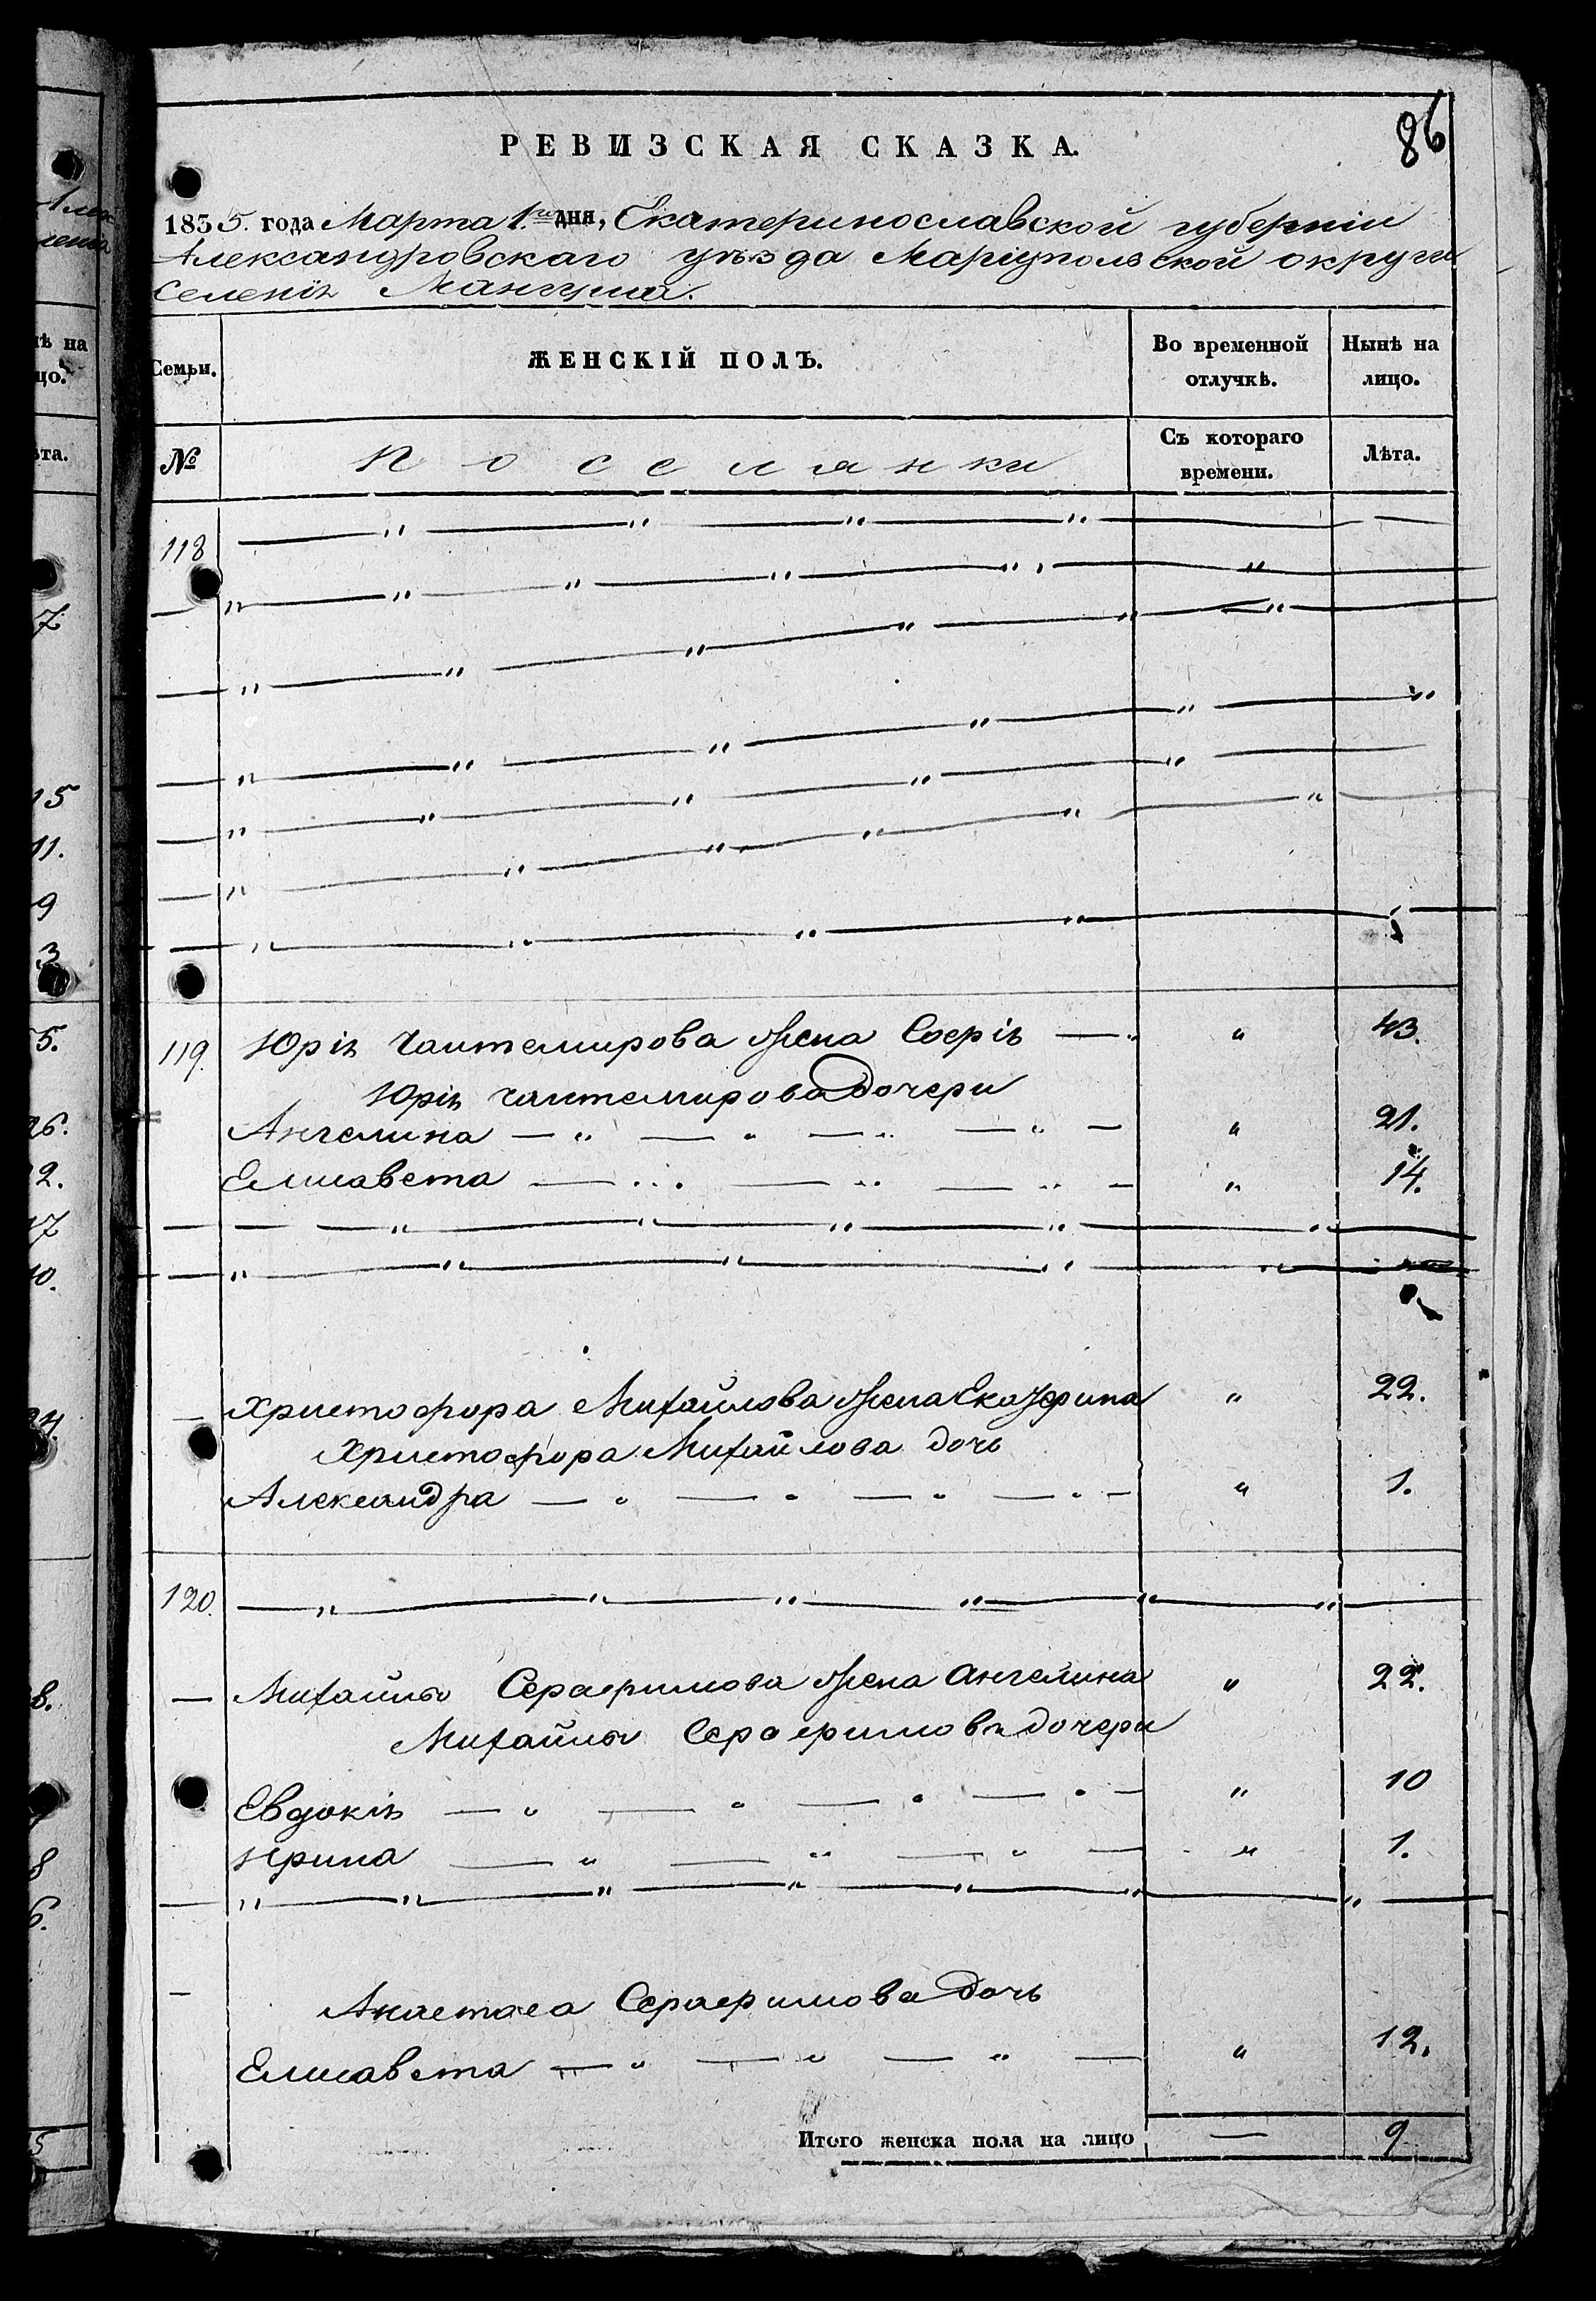 86
РЕВИЗСКАЯ СКАЗКА.
1835. года Марта 1го дня, Екатеринославской губерніи
Александровскаго уѣзда Маріупольской округи
Селенія Мангуша.
Семьи.
ЖЕНСКІЙ ПОЛЪ.
Во временной отлучкѣ.
Нынѣ на лицо.
№
Поселянки
Съ котораго времени.
Лѣта.
118
119. Юрія Чантемирова жена Софія — " " 43.
Юрія Чантемирова дочери
Ангелина — " — " — " — " — " 21.
Елисавета — " — " — " — " 14.
— Христофора Михайлова жена Екатерина " 22.
Христофора Михайлова дочь
Александра — " — " — " — " — " 1.
120.
— Михайлы Серафимова жена Ангелина " 22.
Михайлы Серафимова дочери
Евдокія — " — " — " — " — " 10
Ирина — " — " — " — " 1.
— Анастаса Серафимова дочь
Елисавета — " — " — " — " 12.
Итого женска пола на лицо — 9